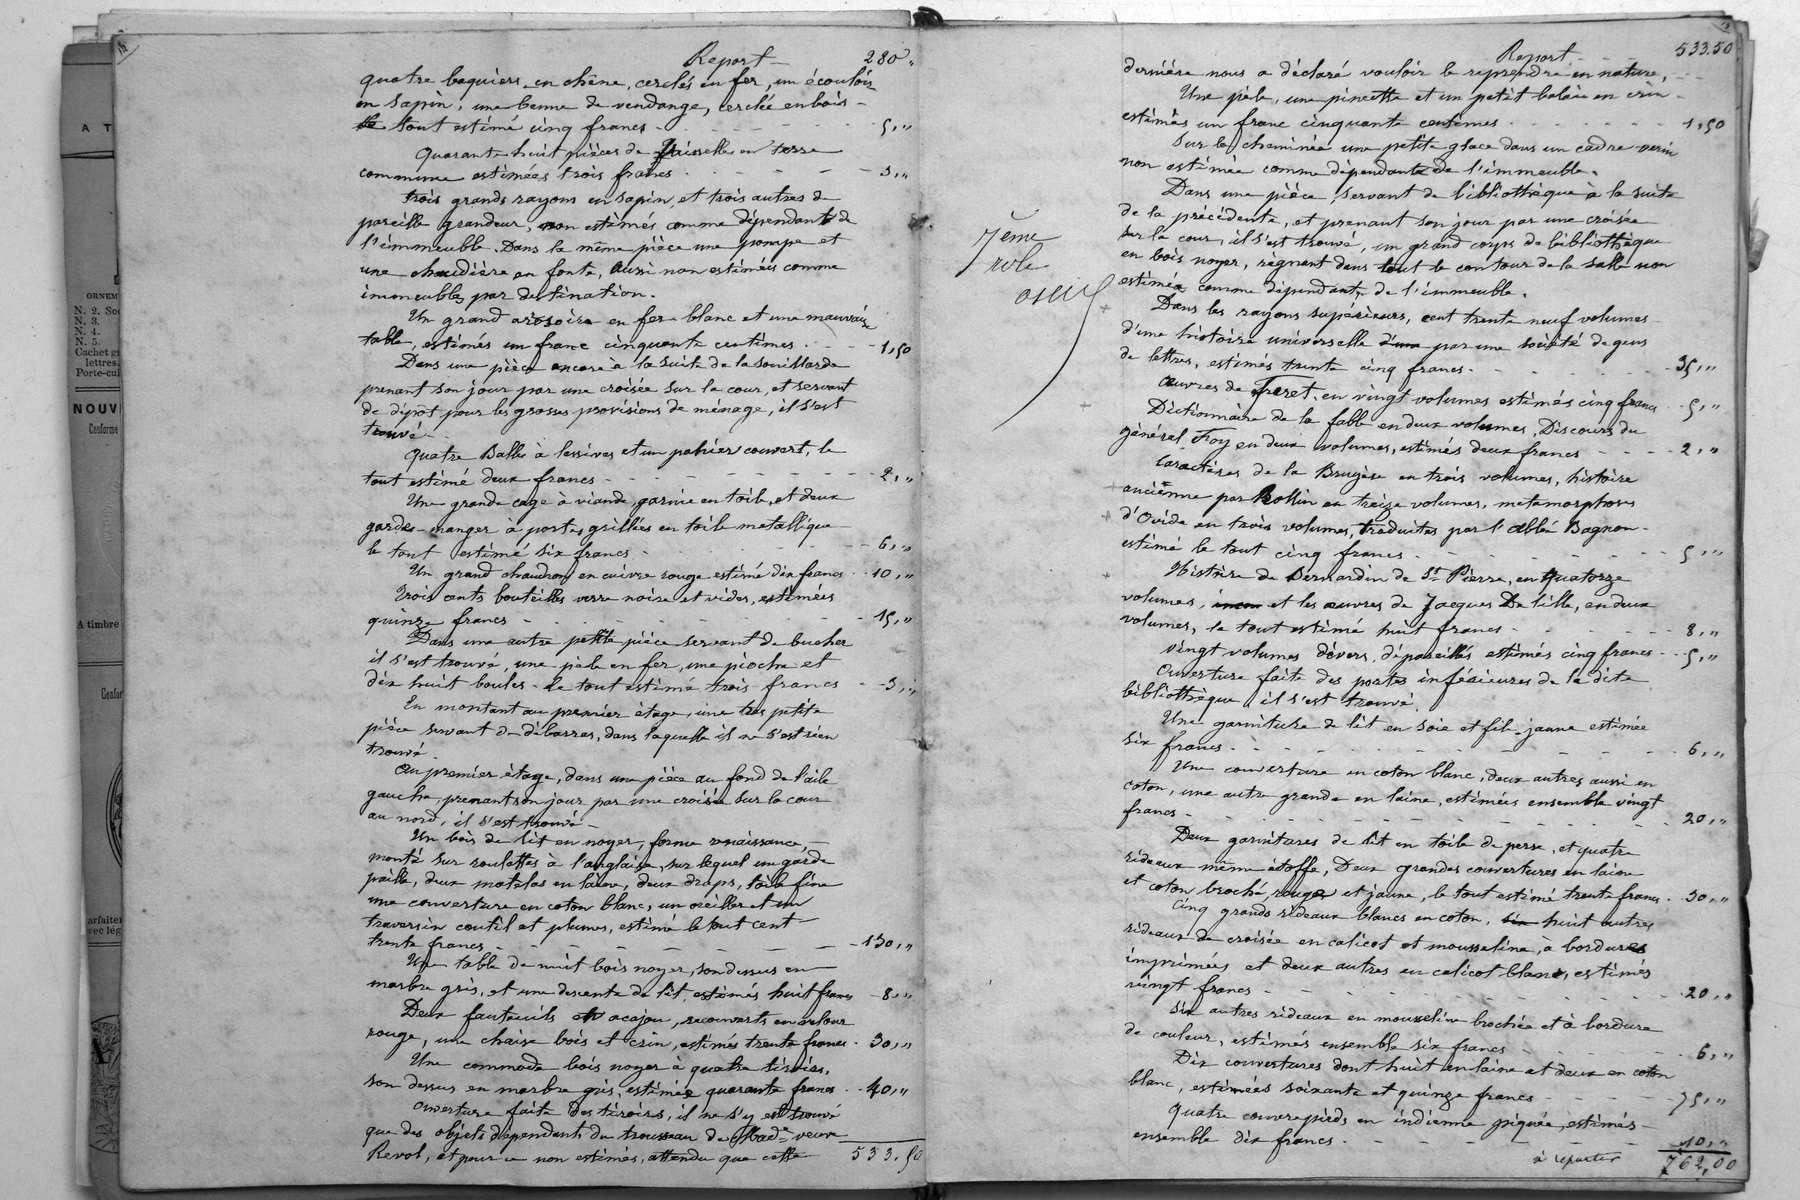 Report 280 "
quatre baquiers en chêne, cerclés en fer, un écouloir
en sapin, une benne de vendange, cerclé en bois
tout estimé cinq francs - 5, "
Quarante huit pièces de vaisselle en terre
commune estimées trois francs - 3, "
trois grands rayons en sapin, et trois autres de
pareille grandeur, non estimés comme dépendant de
l'immeuble. Dans la même pièce une pompe et
une chaudière en fonte, aussi non estimées comme
immeubles par destination.
Un grand arosoire en fer blanc et une mauvaise
table, estimés un franc cinquante centimes - 1,50
Dans une pièce encore à la suite de la souillarde
prenant son jour par une croisée sur la cour, et servant
de dépôt pour les grosses provisions de ménage, il s'est
trouvé
Quatre Balles à lessives et un panier couvert, le
tout estimé deux francs - 2, "
Une grande cage à viande garnie en toile, et deux
gardes-manger à portes grillées en toile metallique
le tout estimé six francs - 6, "
Un grand chaudron en cuivre rouge estimé dix francs - 10, "
Trois cents bouteilles verre noire et vides, estimées
quinze francs - 15, "
Dans une autre petite pièce servant de bucher
il s'est trouvé, une pèle en fer, une pioche et
dix huit boules - le tout estimé trois francs - 3, "
En montant au premier étage, une très petite
pièce servant de débarras, dans laquelle il ne s'est rien
trouvé
Au premier étage, dans une pièce au fond de l'aile
gauche, prenant son jour par une croisée sur la cour
au nord, il s'est trouvé -
Un bois de lit en noyer, forme renaissance,
monté sur roulettes à l'anglaise, sur lequel un garde
paille, deux matelas en laine, deux draps, toile fine
une couverture en coton blanc, un oreiller et un
traversin coutil et plumes, estimé le tout cent
trente francs - 130, "
Une table de nuit bois noyer, son dessus en
marbre gris, et une descente de lit, estimés huit francs - 8, "
Deux fauteuils en acajou, recouverts en velour
rouge, une chaise bois et crin, estimés trente francs - 30, "
Une commode bois noyer à quatre tiroirs,
son dessus en marbre gris, estimée quarante francs - 40, "
Ouverture faite des tiroirs, il ne s'y est trouvé
que des objets dépendants du trousseau de Made veuve
Revol, et pour ce non estimés, attendu que cette 533,50
Report 533.50
dernière nous a déclaré vouloir le reprendre en nature,
Une pèle, une pincette et un petit balai en crin
estimés un franc cinquante centimes - 1,50
Sur la cheminée une petite glace dans un cadre
non estimée comme dépendante de l'immeuble.
Dans une pièce servant de bibliothèque à la suite
de la précédente, et prenant son jour par une croisée
sur la cour, il s'est trouvé, un grand corps de bibliothèque
en bois noyer, règnant dans tout le contour de la salle non
estimée comme dépendant de l'immeuble.
7ème
role
Dans les rayons supérieurs, cent trente neuf volumes
d'une histoire universelle d'une par une société de gens
de lettres, estimés trente cinq francs - 35, "
Œuvres de Freret, en vingt volumes estimés cinq francs - 5, "
Dictionnaire de la fable en deux volumes, Discours du
général Foy en deux volumes, estimés deux francs - 2, "
Caractères de la Bruyère en trois volumes, histoire
ancienne par Rollin en treize volumes, metamorphoses
d'Ovide en trois volumes, traduites par l'abbé Bagnon -
estimé le tout cinq francs - 5, "
Histoire de Bernardin de St Pierre, en quatorze
volumes, et les œuvres de Jacques Delille, en deux
volumes, le tout estimé huit francs - 8, "
Vingt volumes divers, dépareillés estimés cinq francs - 5, "
Ouverture faite des portes inférieures de la dite
bibliothèque, il s'est trouvé.
Une garniture de lit en soie et fil jaune estimée
six francs - 6, "
Une couverture en coton blanc, deux autres aussi en
coton, une autre grande en laine, estimées ensemble vingt
francs - 20, "
Deux garnitures de lit en toile de perse, et quatre
rideaux même étoffe, Deux grandes couvertures en laine
et coton broché, rouge et jaune, le tout estimé trente francs - 30, "
Cinq grands rideaux blancs en coton, six huit autres
rideaux de croisée en calicot et mousseline, à bordures
imprimées et deux autres en calicot blanc, estimés
vingt francs - 20, "
Six autres rideaux en mousseline brochée et à bordure
de couleur, estimés ensemble six francs - 6, "
Dix couvertures dont huit en laine et deux en coton
blanc, estimées soixante et quinze francs - 75, "
Quatre couvrepieds en indienne piquée, estimés
ensemble dix francs - 10, "
à reporter 762,00
A T
ORNEM
N. 2. Sou
N. 3.
N. 4.
N. 5.
Cachet gr
lettres.
Porte-cui
NOUV
Conforme
A timbre
Confor
arfaiter
vec lég